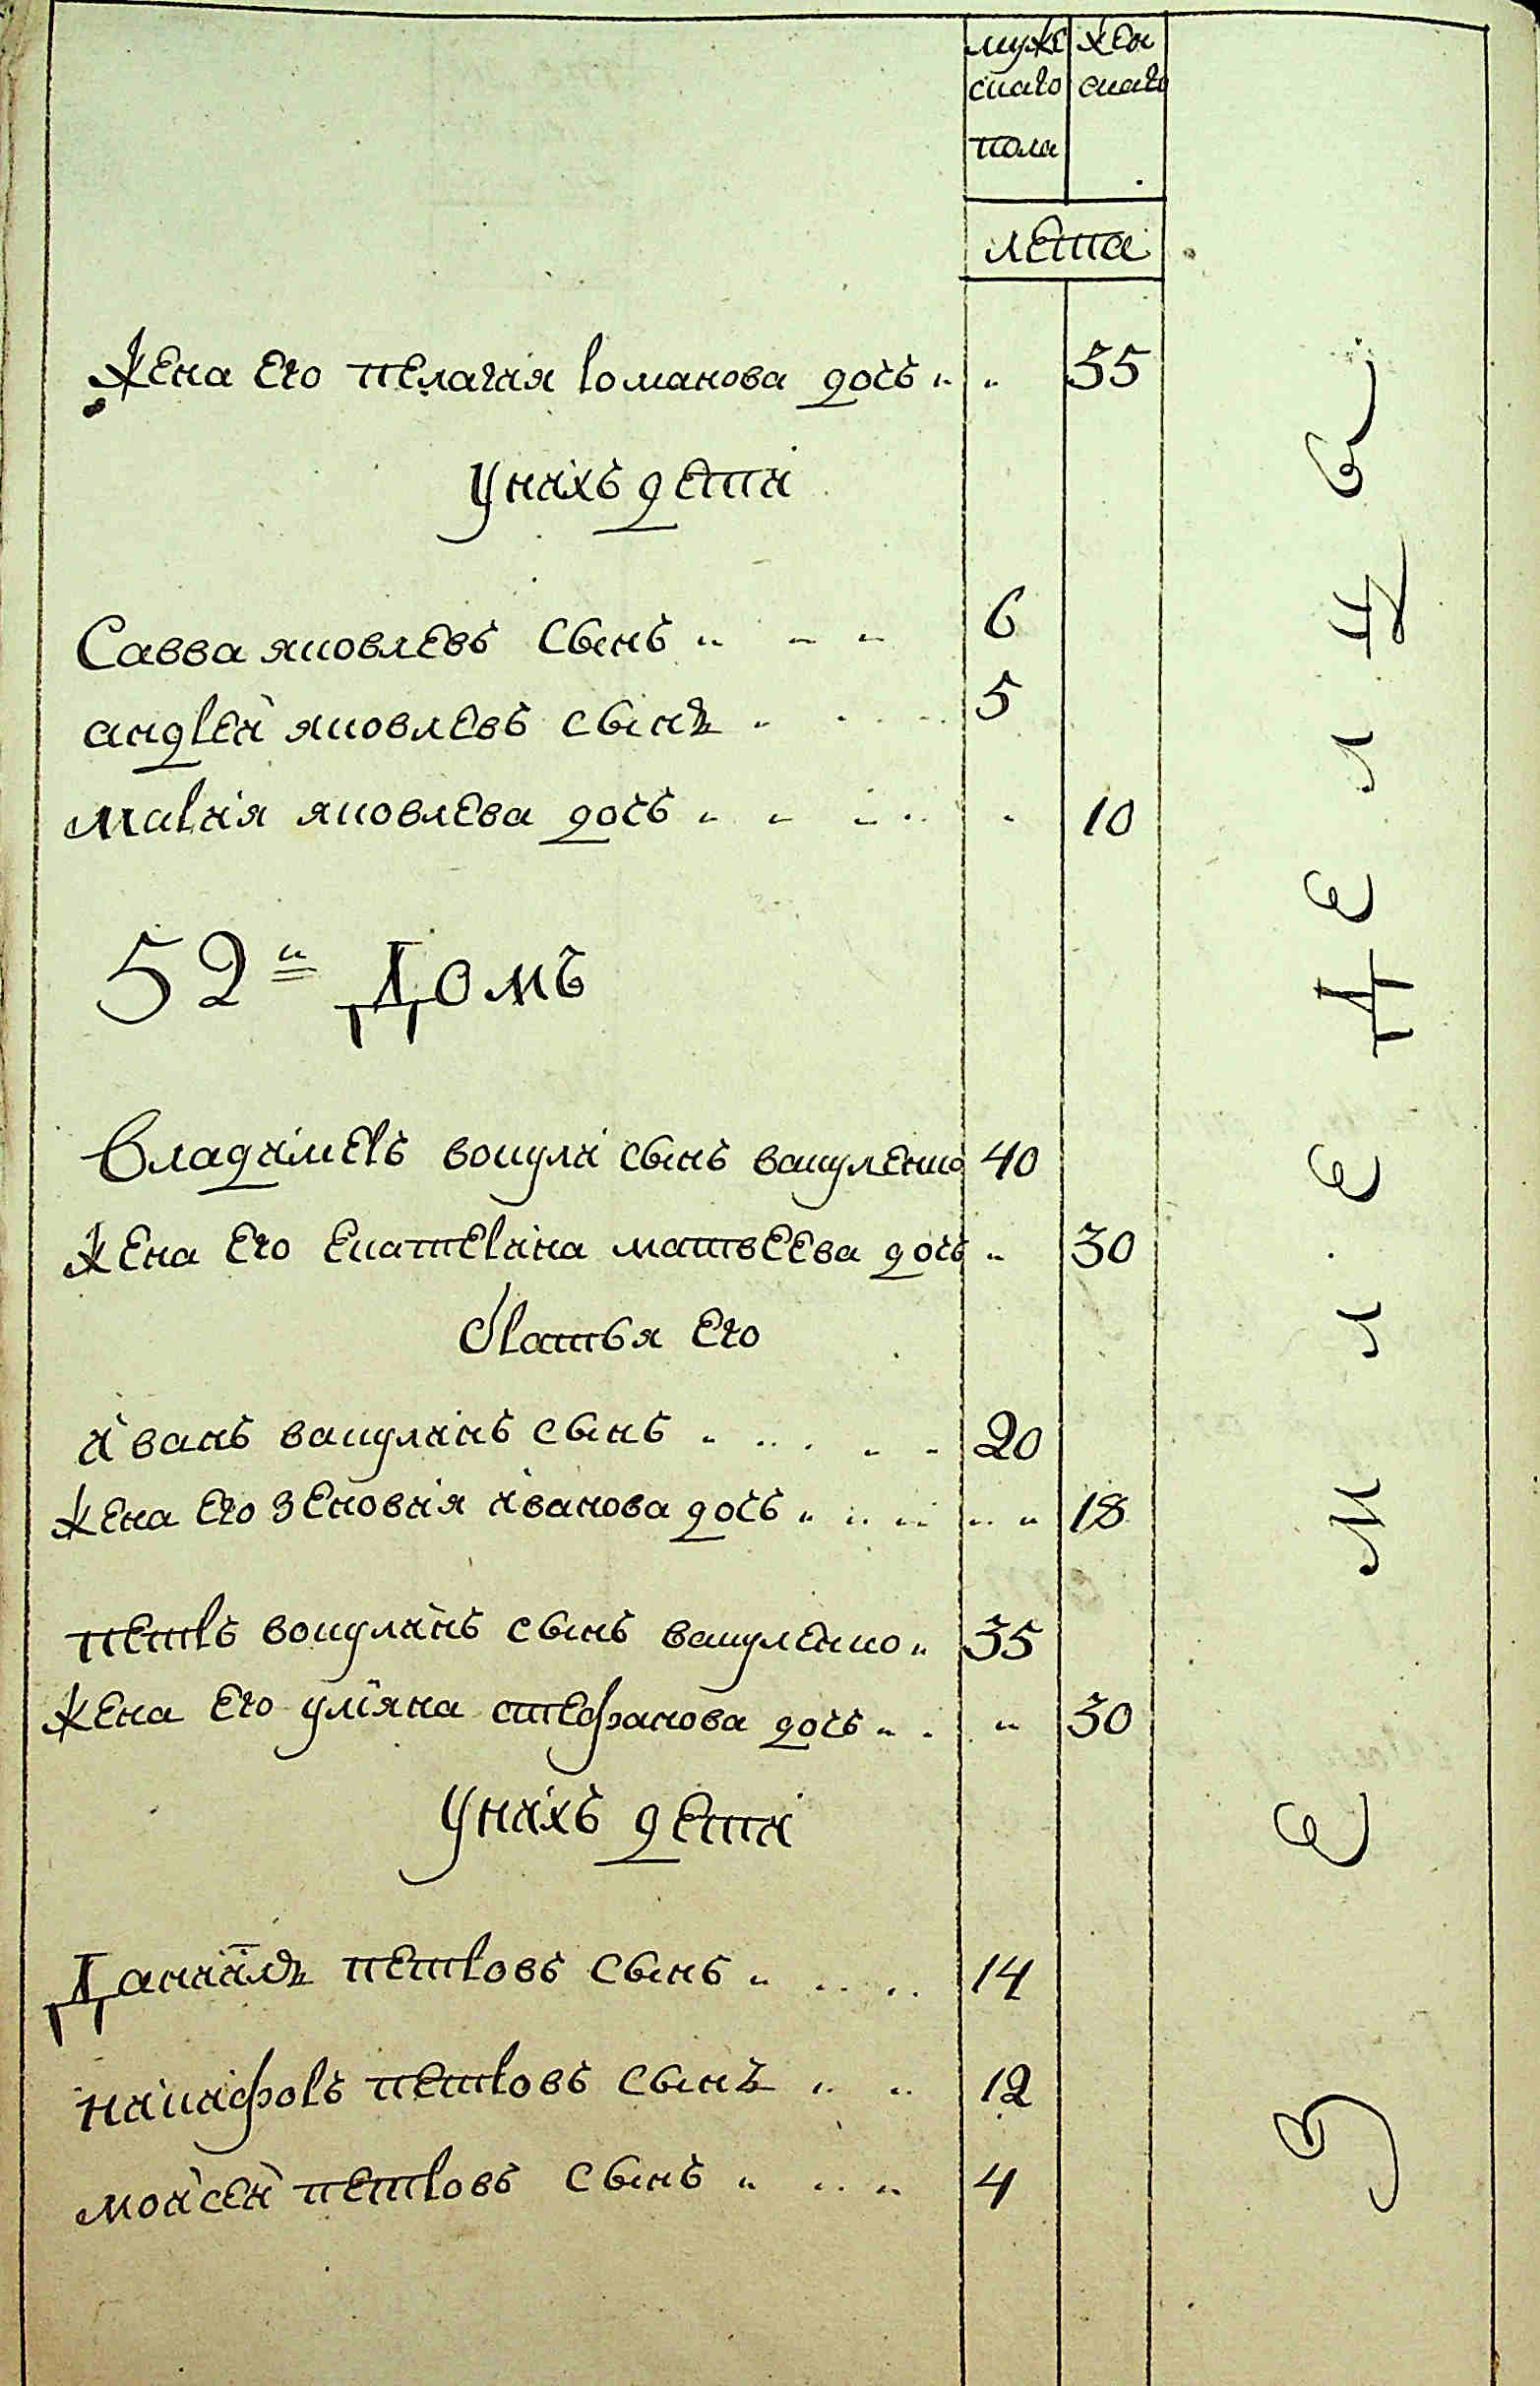 мужескаго женскаго
пола
лета
жена его пелагия романова дочь 55
у них дети
Савва яковлевъ сынъ 6
андрей яковлевъ сынъ 5
мария яковлева дочь 10
52й Домъ
Владимеръ вокула сынъ вакуленко 40
жена его екатерина матвеева дочь 30
братья его
иванъ вакулинъ сынъ 20
жена его зеновия иванова дочь 18
петръ вокулинъ сынъ вакуленко 35
жена его улияна стефанова дочь 30
у нихъ дети
Даниилъ петровъ сынъ 14
никифоръ петровъ сынъ 12
моисей петровъ сынъ 4
земледелцы